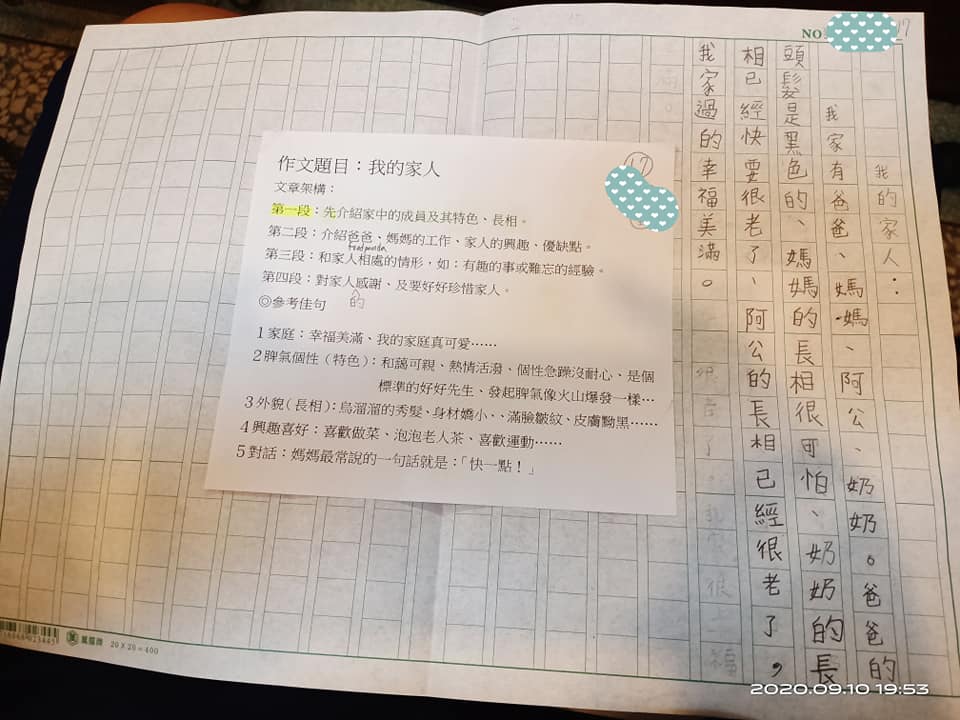 NO
17
我的家人：
我家有爸爸、媽媽、阿公、奶奶。爸爸的
頭髮是黑色的、媽媽的長相很可怕、奶奶的長
相已經快要很老了、阿公的長相已經很老了，
我家過的幸福美滿。
17
作文題目：我的家人
文章架構：
第一段：先介紹家中的成員及其特色、長相。
第二段：介紹爸爸、媽媽的工作、家人的興趣、優缺點。
第三段：和家人相處的情形，如：有趣的事或難忘的經驗。
第四段：對家人感謝、及要好好珍惜家人。
的
◎參考佳句
1家庭：幸福美滿、我的家庭真可愛……
2脾氣個性（特色）：和藹可親、熱情活潑、個性急躁沒耐心、是個
標準的好好先生、發起脾氣像火山爆發一樣…
3外貌（長相）：烏溜溜的秀髮、身材嬌小、、滿臉皺紋、皮膚黝黑……
4興趣喜好：喜歡做菜、泡泡老人茶、喜歡運動……
5對話：媽媽最常說的一句話就是：「快一點！」
20 X 20 = 400
2020.09.10 19:53